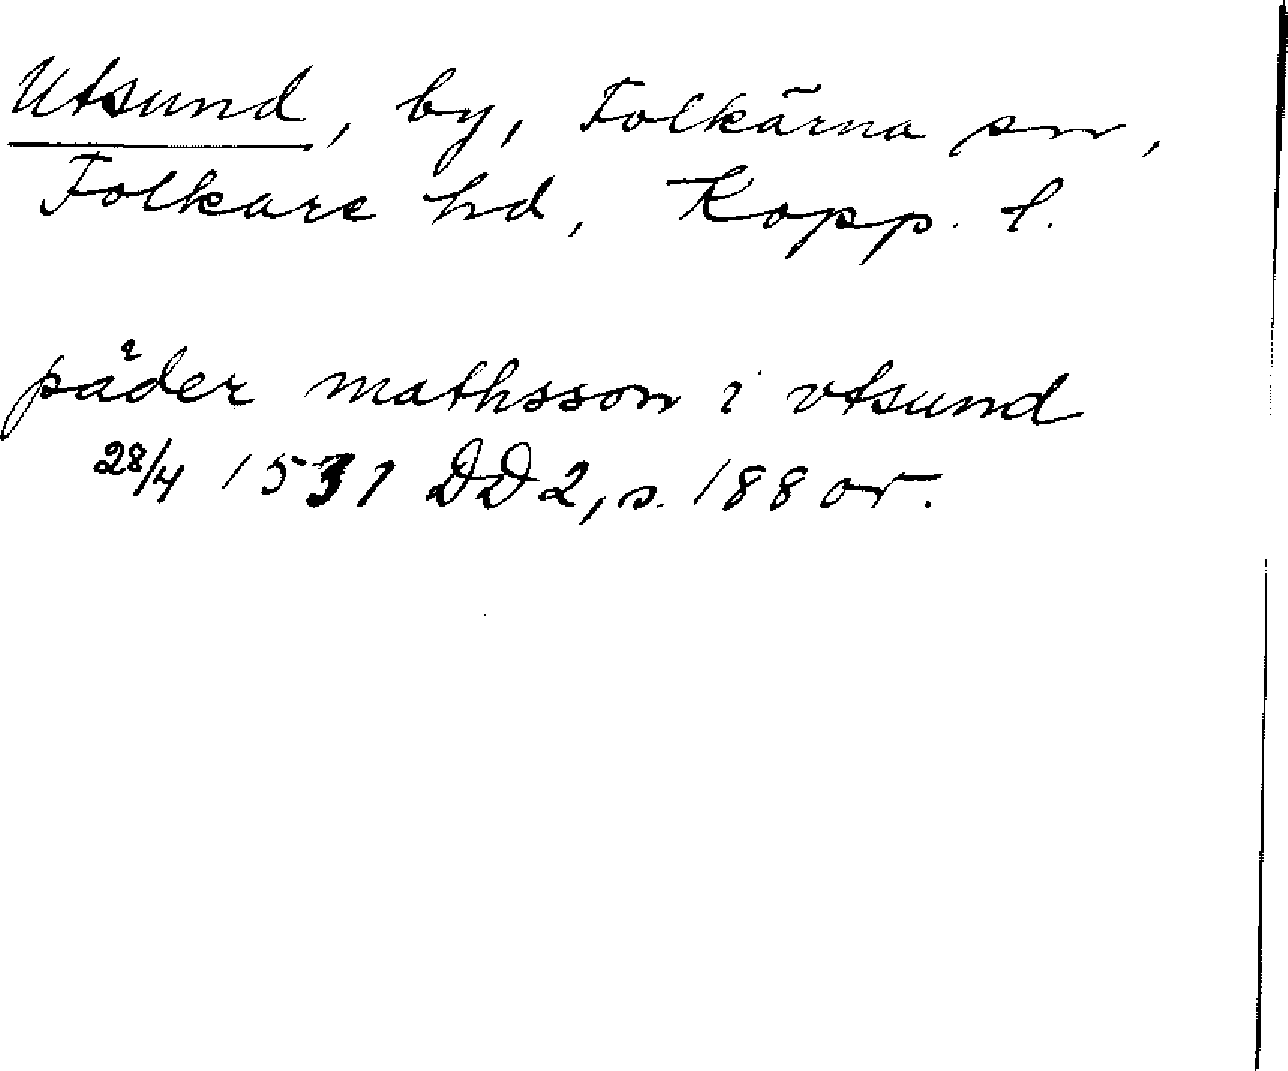 Utsund, by, Folkärna sn,
Folkare hd, Kopp. l.
päder mathsson i vtsund
28/4 1531 DD 2, s. 188 or.